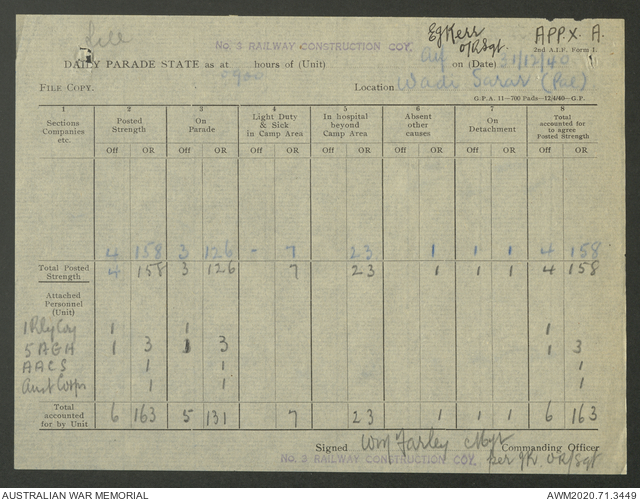 file
Eg Kerr
O/RSgt.
APPX. A.
No. 3 RAILWAY CONSTRUCTION COY.
2nd A.I.F. Form 1.
DAILY PARADE STATE as at 0900 hours of (Unit) AIF on (Date) 31/12/40
FILE COPY. Location Wadi Sarar (Pal)
G.P.A. 11—700 Pads—12/4/40—G.P.
1 2 3 4 5 6 7 8
Sections Companies etc. Posted Strength On Parade Light Duty & Sick in Camp Area In hospital beyond Camp Area Absent other causes On Detachment Total accounted for to agree Posted Strength
Off OR Off OR Off OR Off OR Off OR Off OR Off OR
4 158 3 126 - 7 23 1 1 1 4 158
Total Posted Strength 4 158 3 126 7 23 1 1 1 4 158
Attached Personnel (Unit)
1 Rly Coy 1 1 1
5 AGH 1 3 1 3 1 3
AACS 1 1 1
Aust Corps 1 1 1
Total accounted for by Unit 6 163 5 131 7 23 1 1 1 6 163
Signed Wm Farley Commanding Officer
No. 3 RAILWAY CONSTRUCTION COY. per OR/Sgt
AUSTRALIAN WAR MEMORIAL AWM2020.71.3449